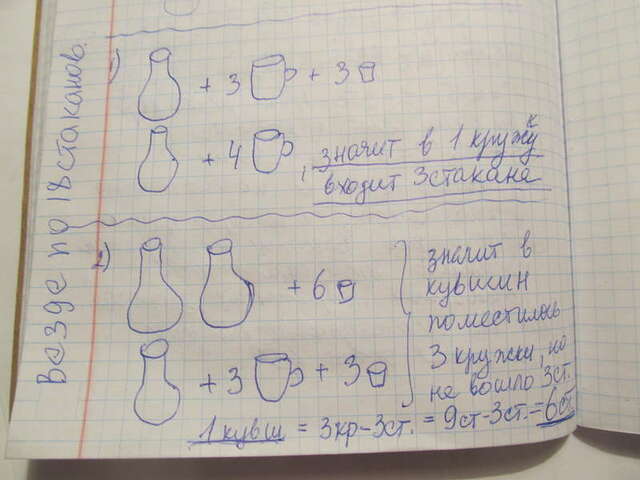 Везде по 18 стаканов.
1) + 3 + 3
+ 4 , значит в 1 кружку
входит 3 стакана
2) + 6
значит в
кувшин
поместилось
+ 3 + 3
3 кружки, но
не вошло 3 ст.
1 кувш = 3 кр - 3 ст. = 9 ст - 3 ст. = 6 ст.